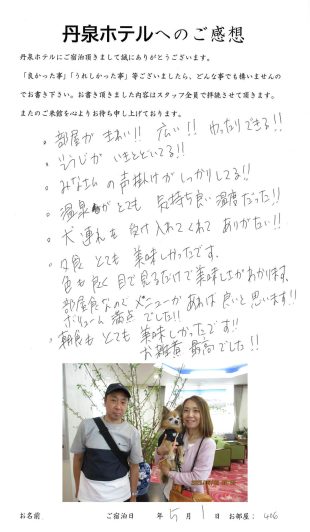 丹泉ホテルへのご感想
丹泉ホテルにご宿泊頂きまして誠にありがとうございます。
「良かった事」「うれしかった事」等ございましたら、どんな事でも構いませんの
でお書き下さい。お書き頂きました内容はスタッフ全員で拝読させて頂きます。
またのご来館を心よりお待ち申し上げております。
・部屋が きれい!! 広い!! ゆったりできる!!
・そうじが いきとどいてる!!
・みなさんの 声掛けが しっかりしてる!!
・温泉がとても 気持ち良い 温度だった!!
・犬連れも 受け入れてくれて ありがたい!!
・夕食 とても 美味しかったです。
色も良く 目で見るだけで美味しさがわかります。
部屋食なので メニューがあれば 良いと思います!!
ボリューム 満点でした!!
・朝食も とても 美味しかったです!!
お雑煮 最高でした!!
お名前
ご宿泊日 年 5 月 1 日 お部屋: 406